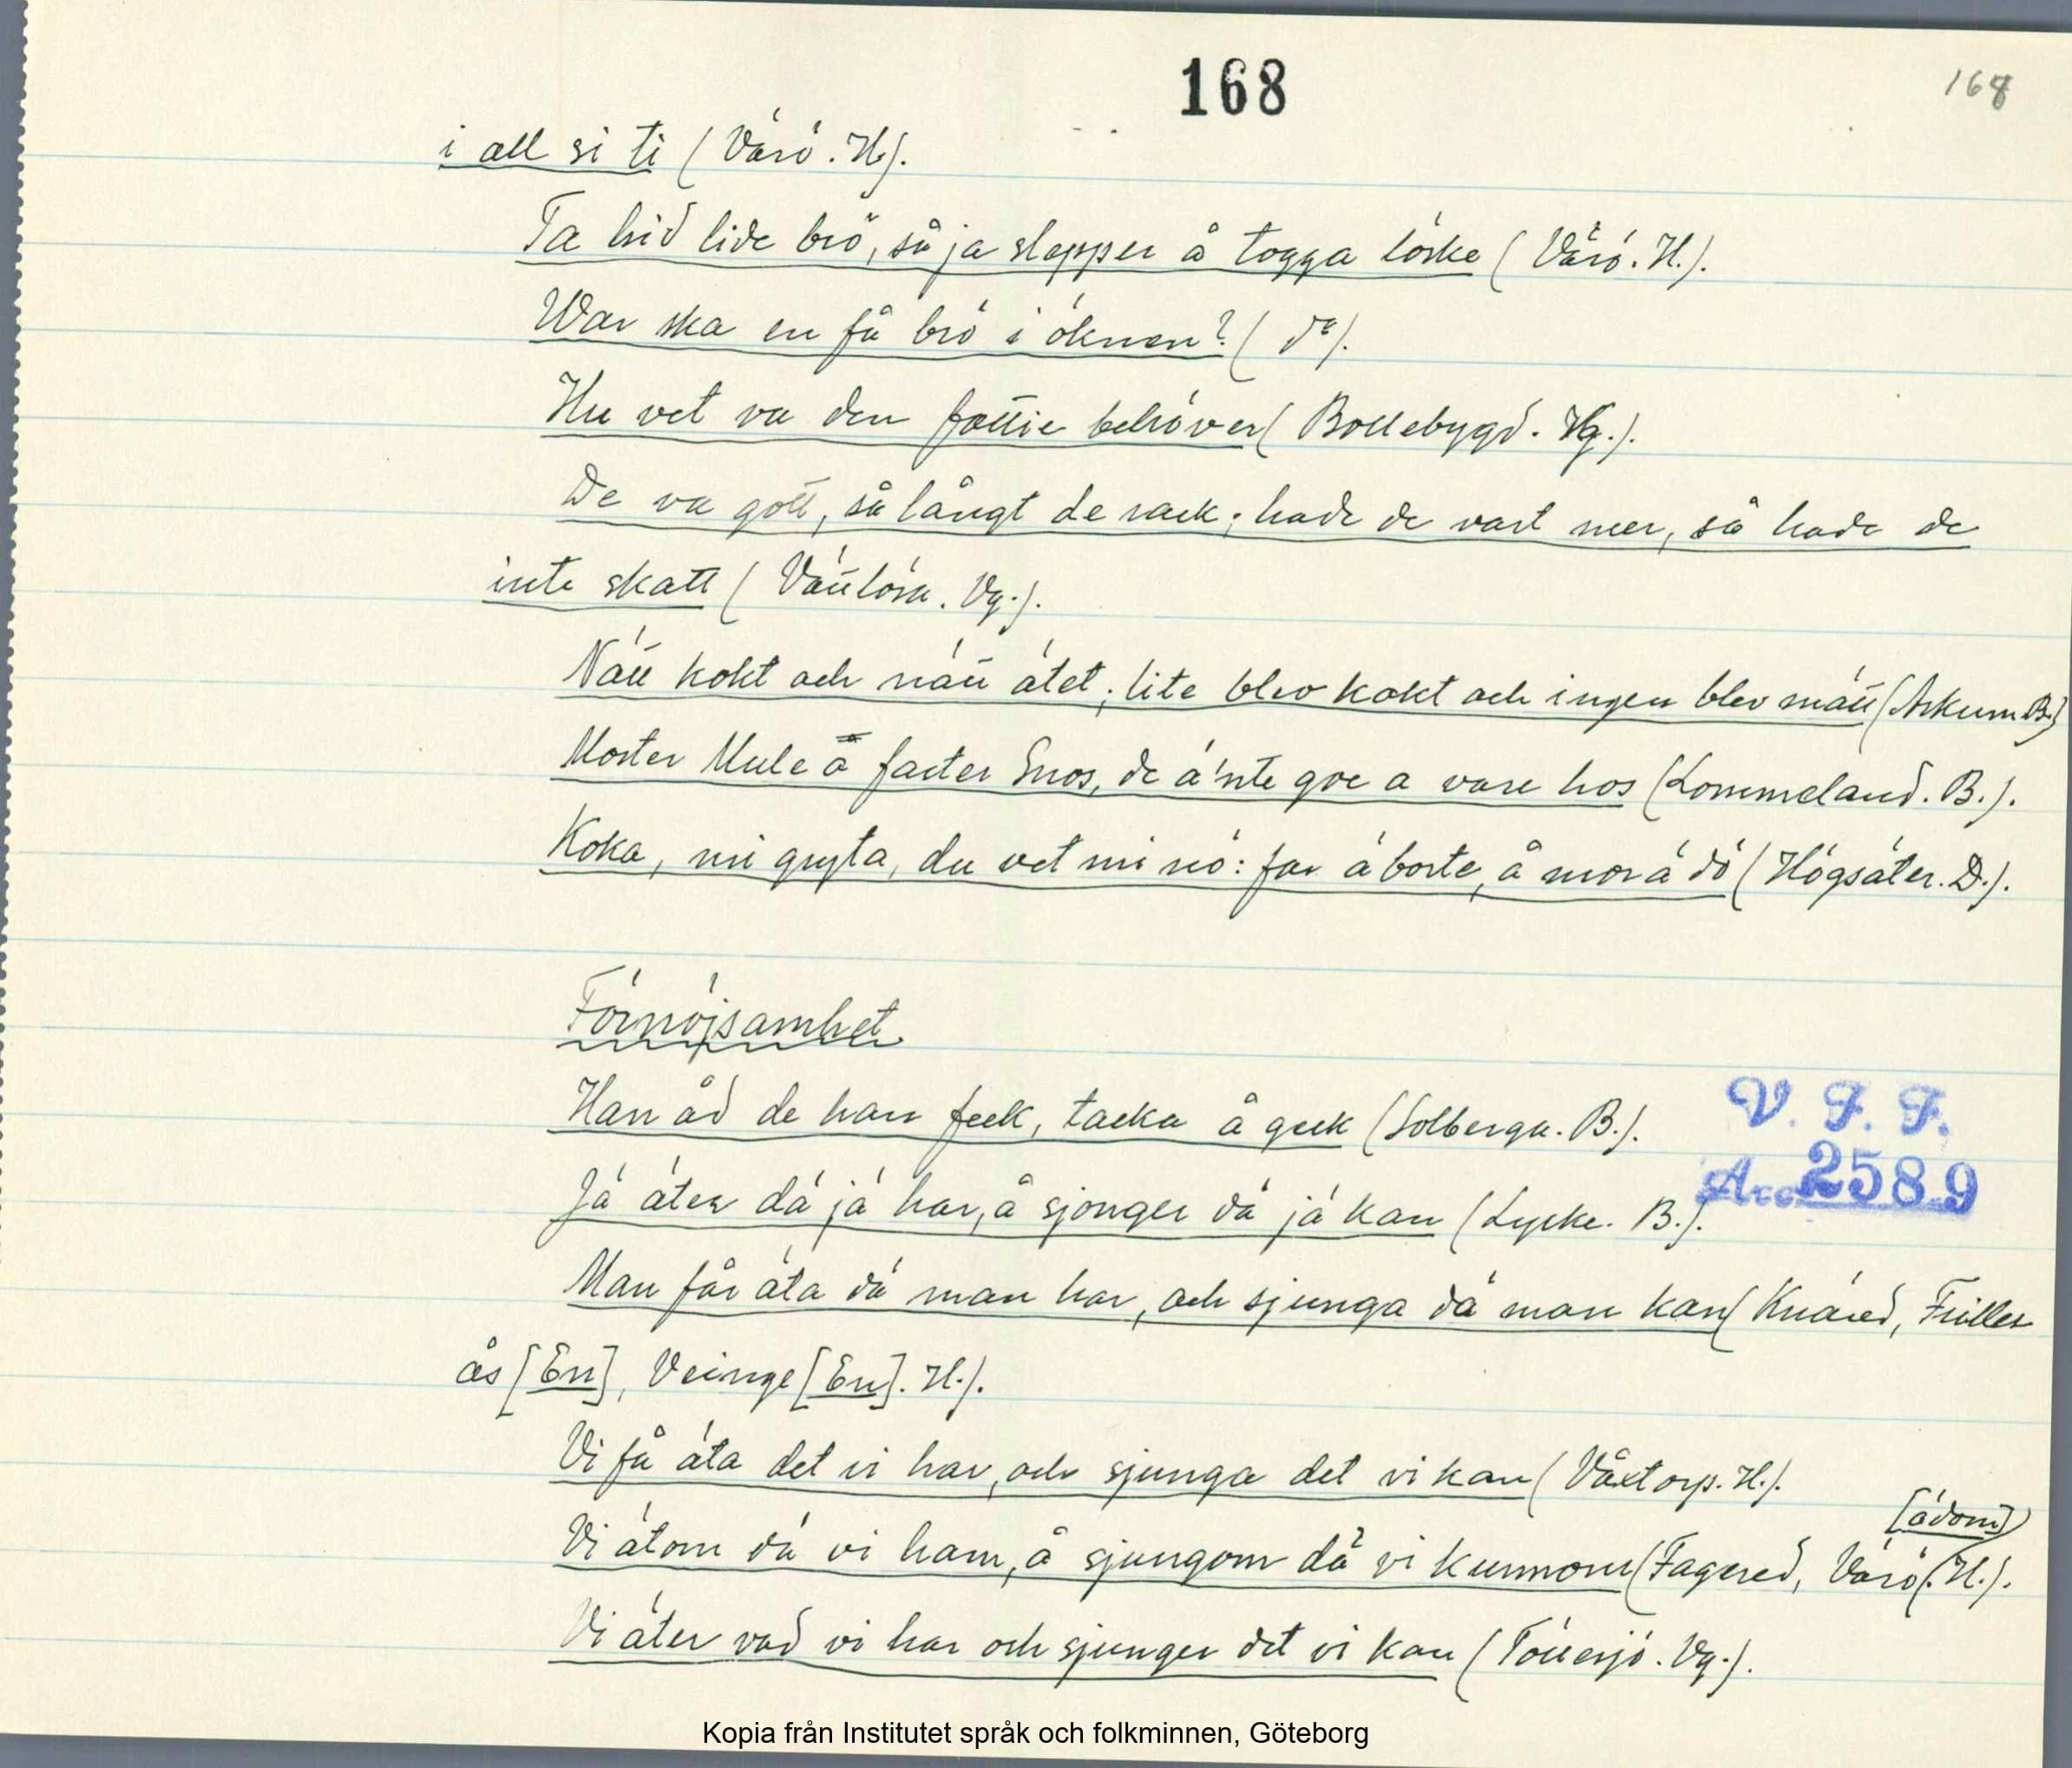 168
168
i all si ti (Värö. H.).
Ta hid lide brö, så ja slepper å togga löske (Värö. H.).
War ska en få brö i öknen? (do).
Hu vet va den fattie behöver (Bollebygd. Vg.).
De va gott, så långt de rack; hade de vart mer, så hade de
inte skatt (Vänlösa. Vg.).
Nätt kokt och nätt ätet; lite blev kokt och ingen blev mätt (Askum B.)
Moster Mule å faster Snos, de ä'nte goe a vare hos (Lommeland. B.).
Koka, mi gryta, du vet mi nö: far ä borte, å mor ä dö (Högsäter. D.).
Förnöjsamhet
Han åd de han feck, tacka å geck (Solberga. B.).
Jä äter dä jä har, å sjonger dä jä kan (Lycke. B.).
V. F. F.
Acc 2589
Man får äta dä man har, och sjunga dä man kan (Knäred, Frilles
ås [En], Veinge [En]. H.).
Vi få äta det vi har, och sjunga det vi kan (Våxtorp. H.).
[ädom]
Vi ätom dä vi ham, å sjungom dä vi kunnom (Fagered, Värö. H.).
Vi äter vad vi har och sjunger det vi kan (Töllesjö. Vg.).
Kopia från Institutet språk och folkminnen, Göteborg